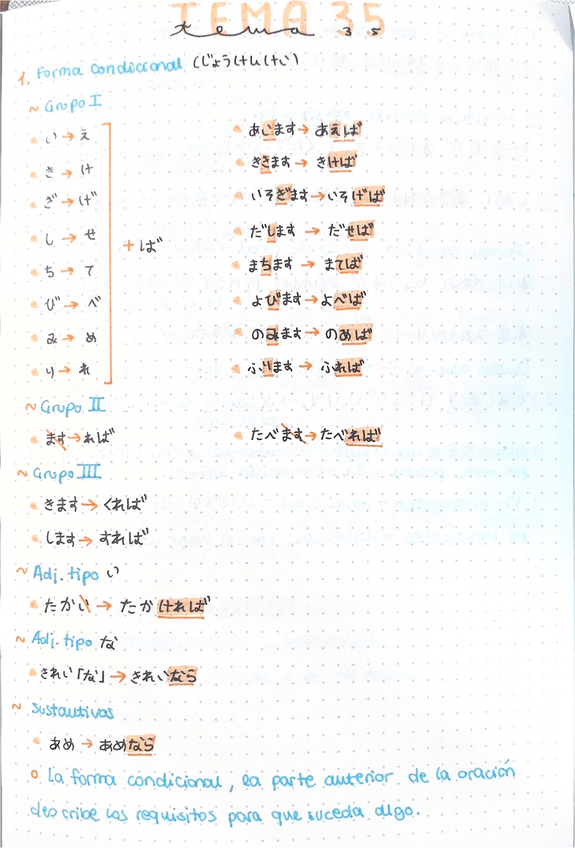 TEMA 35
tema 35
1. Forma condicional (じょうけんけい)
~ Grupo I
い → え
き → け
ぎ → げ
し → せ
ち → て
び → べ
み → め
り → れ
+ ば
あいます → あえば
ききます → きけば
いそぎます → いそげば
だします → だせば
まちます → まてば
よびます → よべば
のみます → のめば
ふります → ふれば
~ Grupo II
ます → れば
たべます → たべれば
~ Grupo III
きます → くれば
します → すれば
~ Adj. tipo い
たかい → たかければ
~ Adj. tipo な
きれい「な」 → きれいなら
~ Sustantivos
あめ → あめなら
La forma condicional, la parte anterior de la oración
describe los requisitos para que suceda algo.